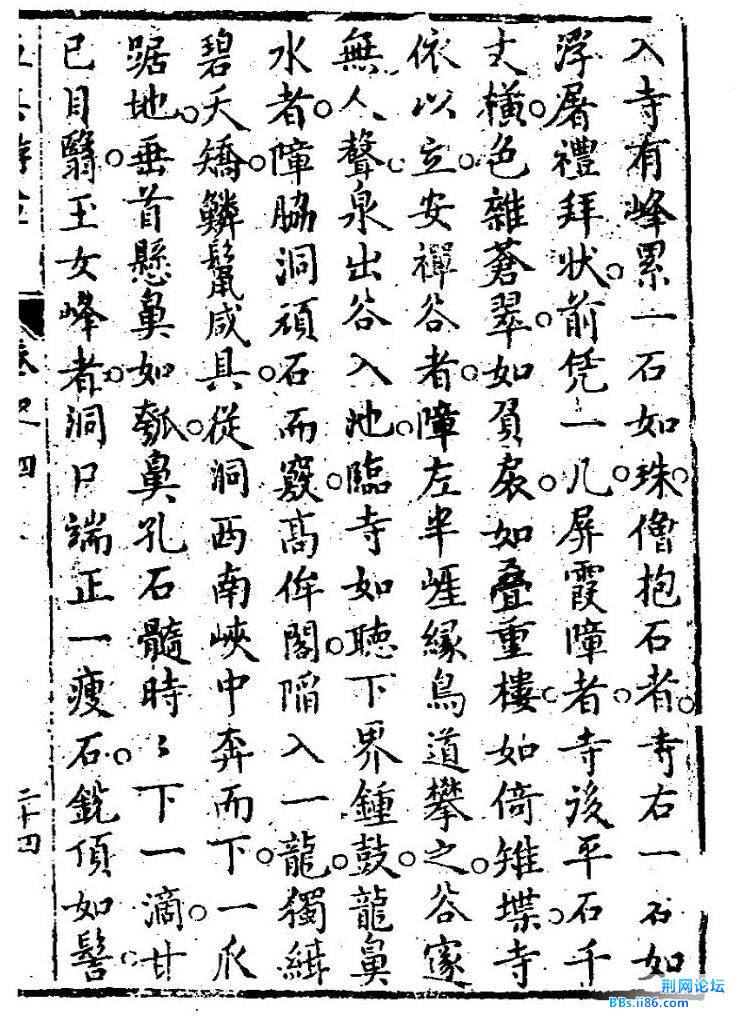 入寺有峰累一石如珠僧抱石者寺右一石如
浮屠禮拜状前凭一几屏霞障者寺後平石千
丈橫色雜蒼翠如負扆如疊重樓如倚雉堞寺
依以立安禪谷者障左半崕緣鳥道攀之谷邃
無人聲泉出谷入池臨寺如聴下界鍾鼓龍鼻
水者障脇洞頑石而竅高侔閣陷入一龍獨緋
碧夭矯鱗鬣咸具從洞西南峽中奔而下一爪
踞地垂首懸鼻如瓠鼻孔石髓時〻下一滴甘
已目翳玉女峰者洞口端正一瘦石銳頂如髻
卷之四
二十四
荆网论坛
BBs.ii86.com